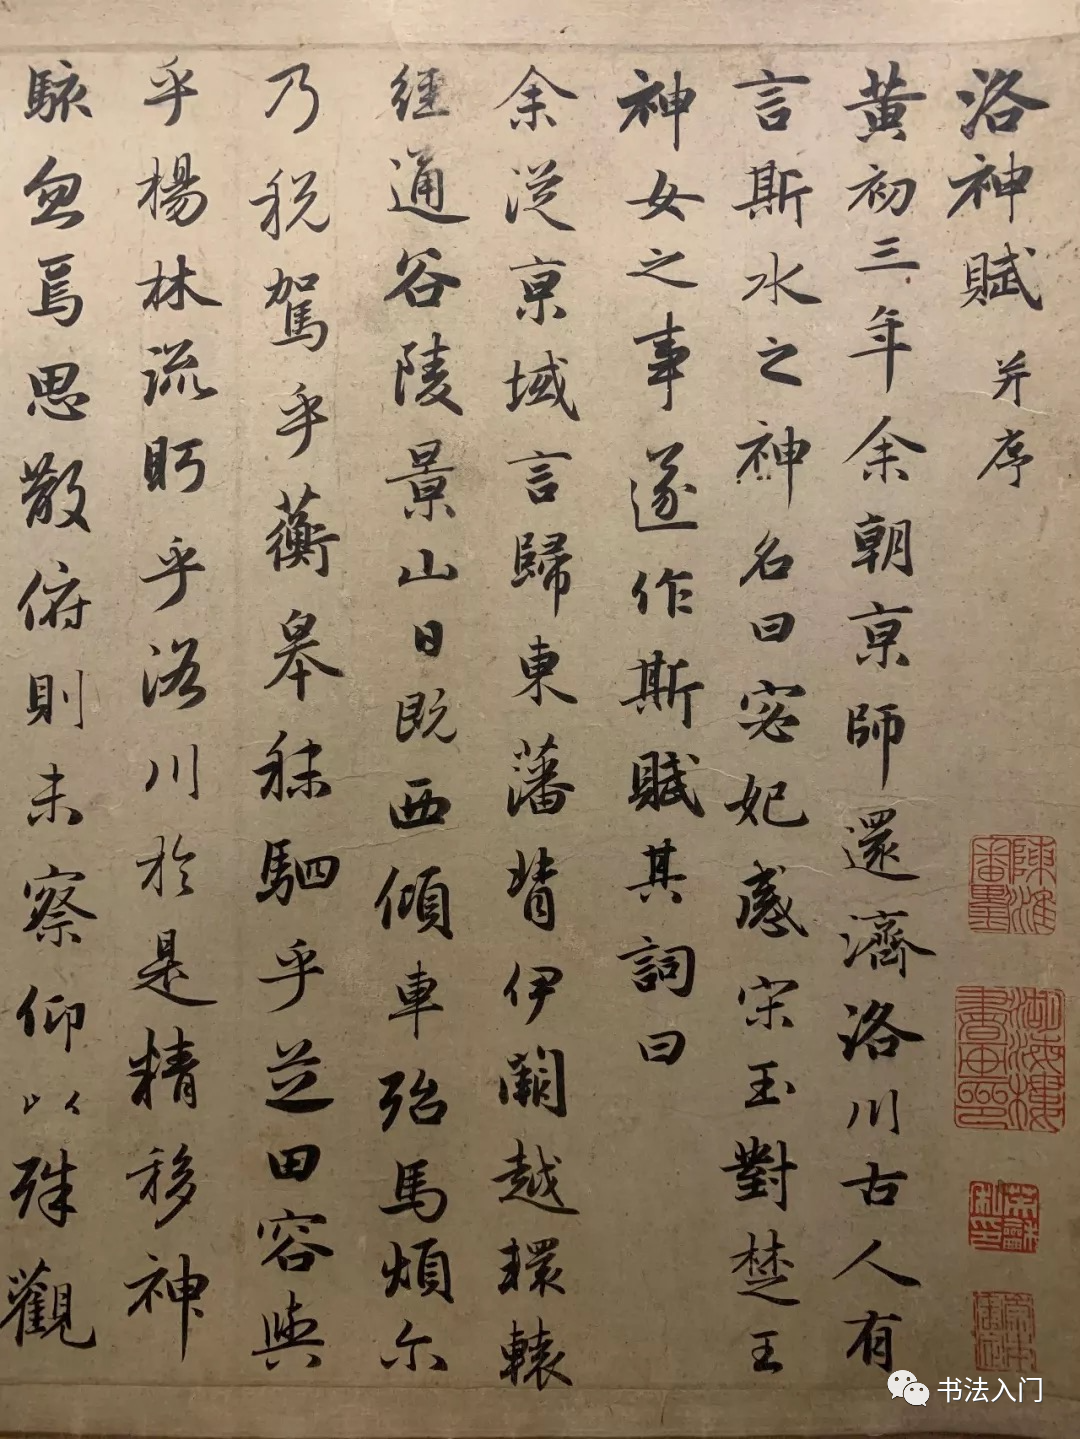 洛神賦 并序
黄初三年余朝京師還濟洛川古人有
言斯水之神名曰宓妃感宋玉對楚王
神女之事遂作斯賦其詞曰
余従京域言歸東藩背伊闕越轘轅
經通谷陵景山日既西傾車殆馬煩尔
乃税駕乎蘅皋秣駟乎芝田容與
乎楊林流眄乎洛川於是精移神
駭忽焉思散俯則未察仰以殊觀
书法入门